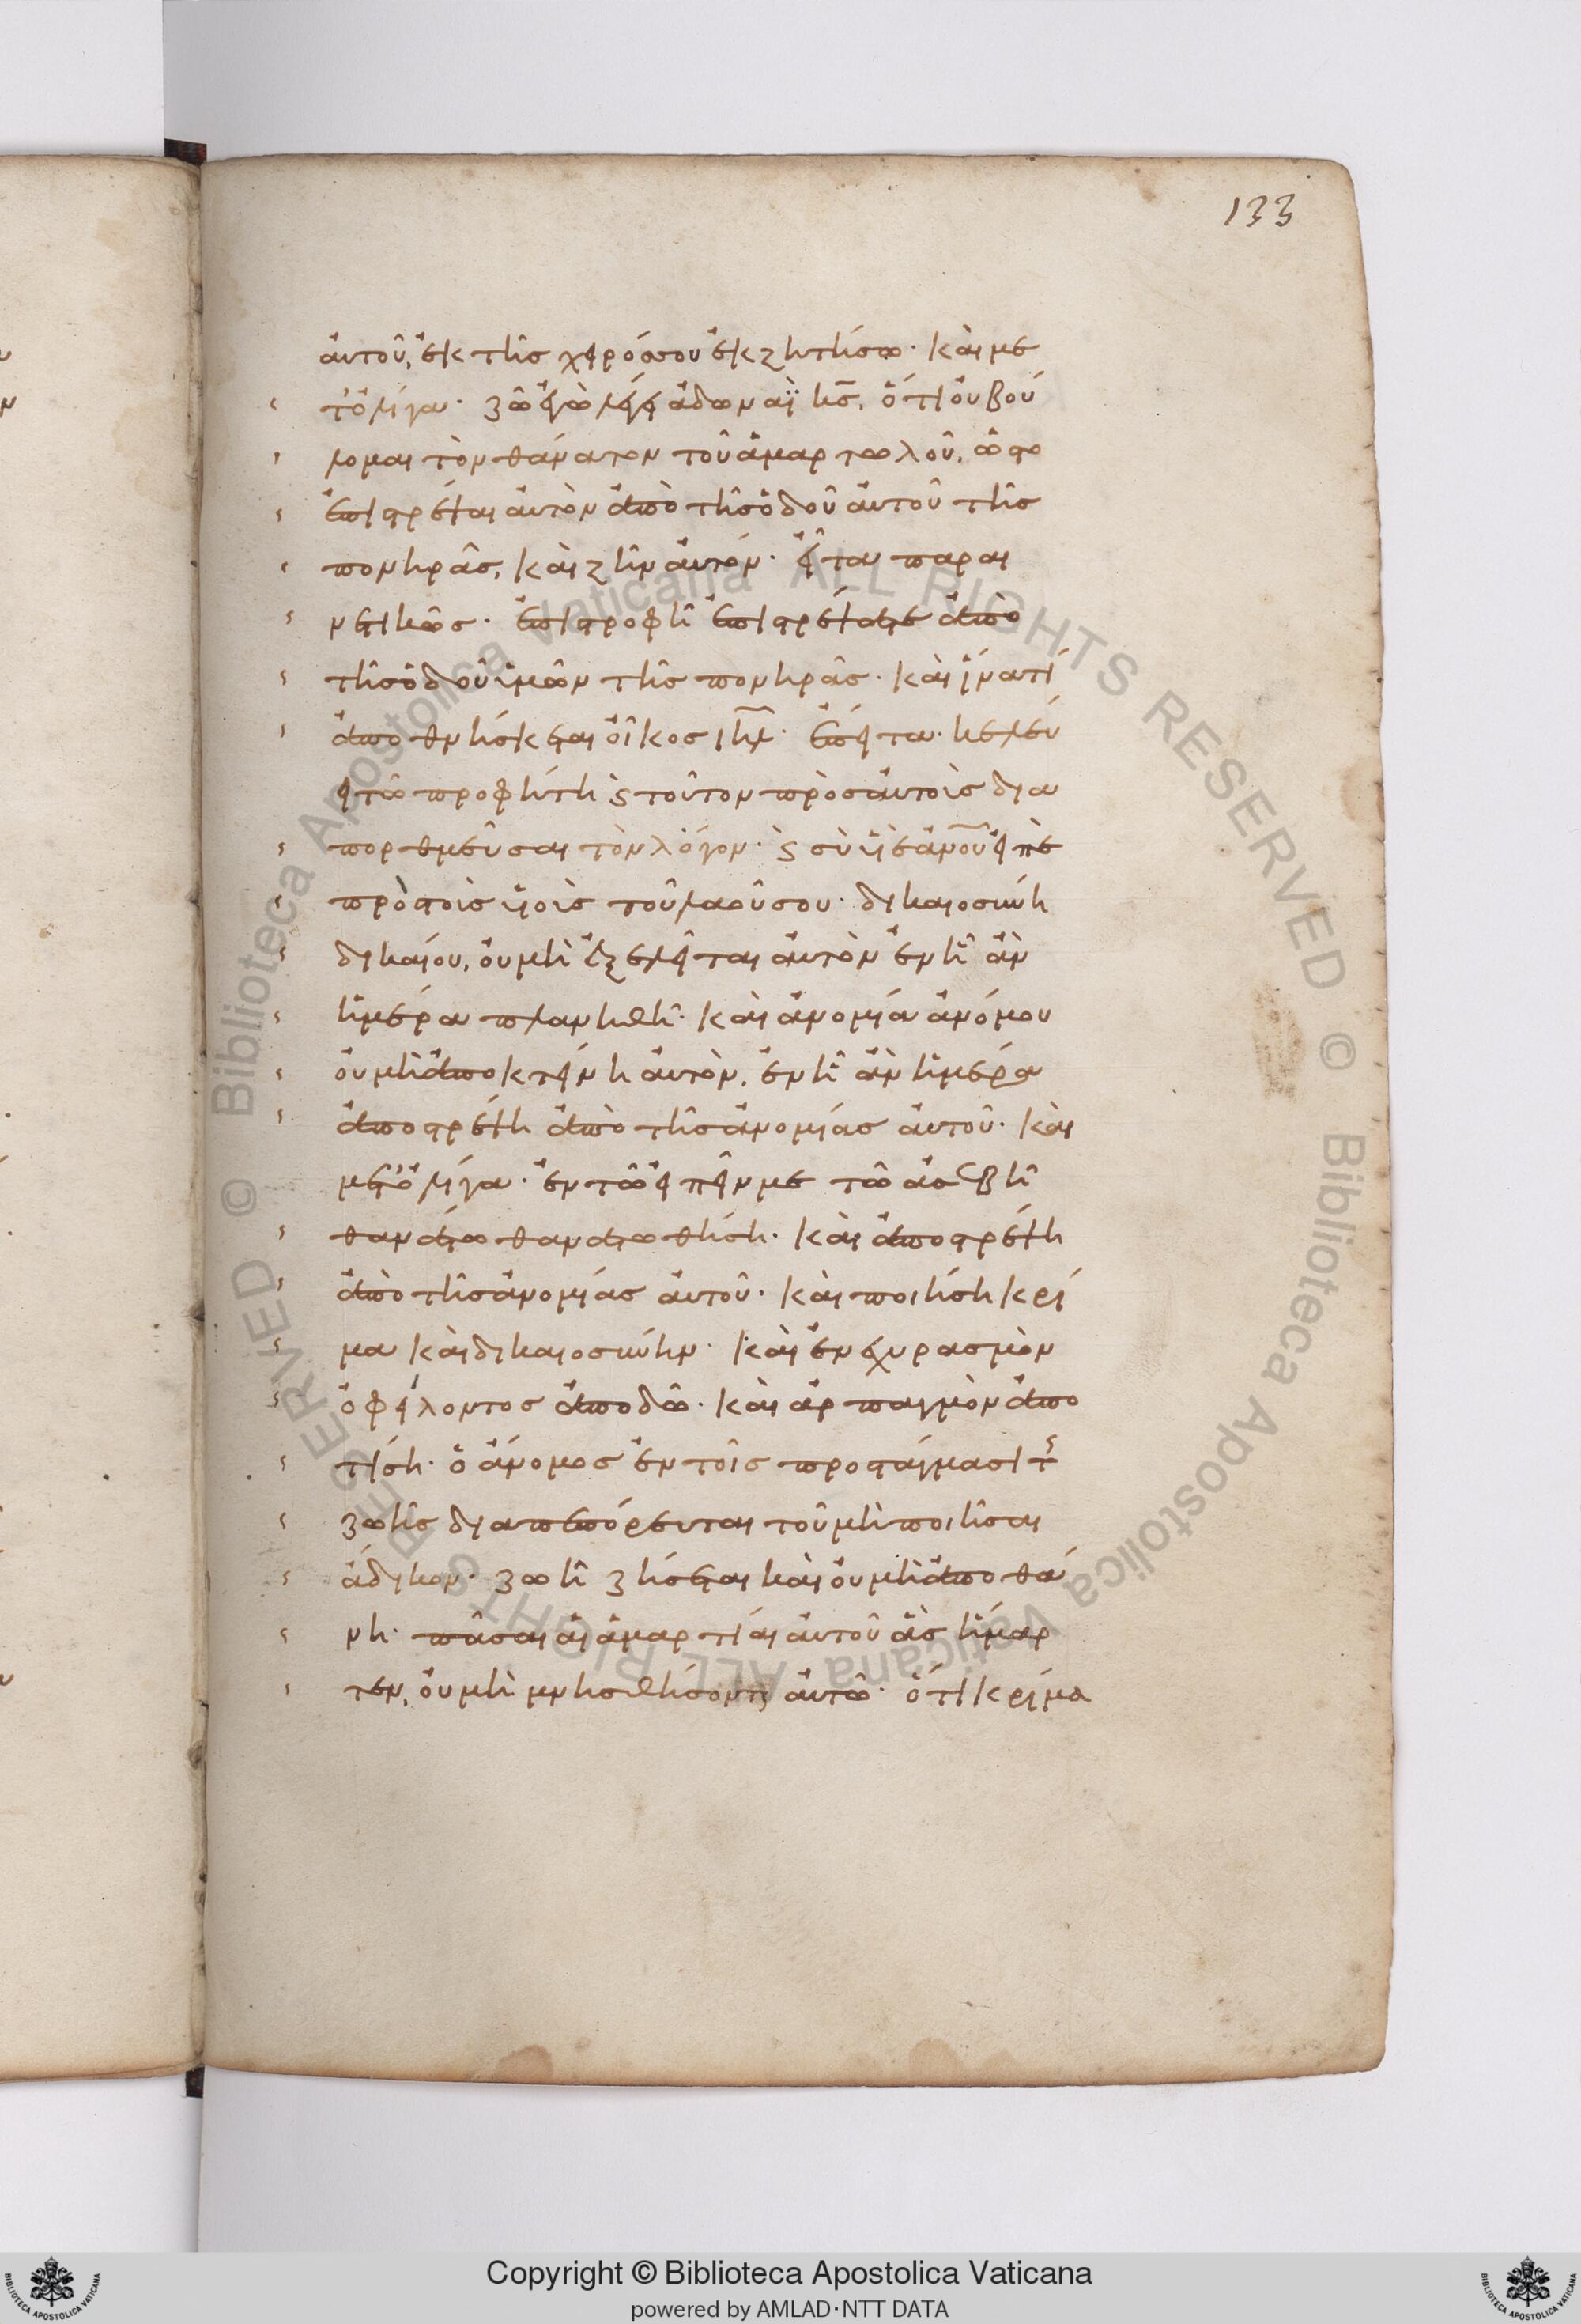 133
αὐτοῦ, ἐκ τῆς χειρός σου ἐκζητήσω· καὶ με
τ' ὀλίγα· ζῶ ἐγὼ λέγει ἀδωναῒ κ̅ς̅, ὅτι οὐ βού
λομαι τὸν θάνατον τοῦ ἁμαρτωλοῦ, ὡς τὸ
ἐπιστρέψαι αὐτὸν ἀπὸ τῆς ὁδοῦ αὐτοῦ τῆς
πονηρᾶς, καὶ ζῆν αὐτόν· εἶτα παραι
νετικῶς· ἐπιστροφῆ ἐπιστρέψατε ἀπὸ
τῆς ὁδοῦ ὑμῶν τῆς πονηρᾶς· καὶ ἵνα τί
ἀποθνήσκεται οἶκος ι̅η̅λ̅· ἔπειτα κελεύ
ει τῶ προφήτη ϛ τοῦτον πρὸς αὐτοὺς δια
πορθμεῦσαι τὸν λόγον· ϛ σὺ υἱὲ ἀν̅ο̅υ̅ εἰπὲ
πρὸς τοὺς υἱοὺς τοῦ λαοῦ σου· δικαιοσύνη
δικαίου, οὐ μὴ ἐξελεῖται αὐτὸν ἐν ἧ ἂν
ἡμέρα πλανηθῆ· καὶ ἀνομία ἀνόμου
οὐ μὴ ἀποκτείνη αὐτὸν, ἐν ἧ ἂν ἡμέρα
ἀποστρέψη ἀπὸ τῆς ἀνομίας αὐτοῦ· καὶ
μετ' ὀλίγα· ἐν τῶ εἰπεῖν με τῶ ἀσεβῆ
θανάτω θανατωθήση· καὶ ἀποστρέψη
ἀπὸ τῆς ἀνομίας αὐτοῦ· καὶ ποιήση κρί
μα καὶ δικαιοσύνην· καὶ ἐνεχυρασμὸν
ὀφείλοντος ἀποδῶ· καὶ ἁρπαγμὸν ἀπο
τίση· ὁ ἄνομος ἐν τοῖς προστάγμασι τ̅ς̅
ζωῆς διαπεπόρευται τοῦ μὴ ποιῆσαι
ἄδικον· ζωῆ ζήσεται καὶ οὐ μὴ ἀποθά
νη· πᾶσαι αἱ ἁμαρτίαι αὐτοῦ ἃς ἥμαρ
τεν, οὐ μὴ μνησθήσονται αὐτῶ· ὅτι κρίμα
Copyright © Biblioteca Apostolica Vaticana
powered by AMLAD·NTT DATA
© Biblioteca Apostolica Vaticana ALL RIGHTS RESERVED © Biblioteca Apostolica Vaticana ALL RIGHTS RESERVED
BIBLIOTECA APOSTOLICA VATICANA
BIBLIOTECA APOSTOLICA VATICANA